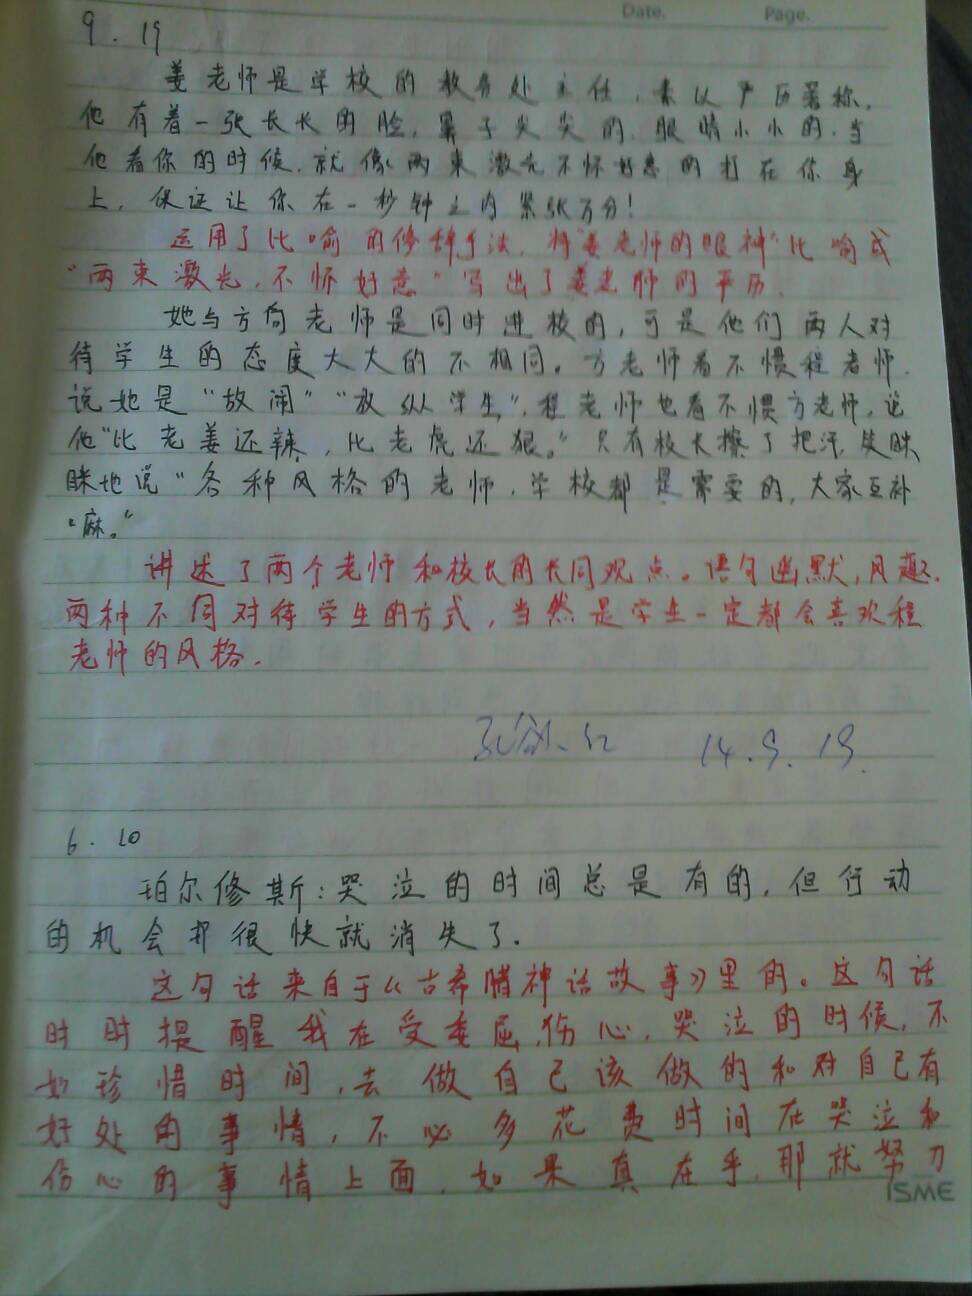 Date. Page.
9.19
姜老师是学校的教务处主任，素以严厉著称。
他有着一张长长的脸，鼻子尖尖的，眼睛小小的，当
他看你的时候，就像两束激光不怀好意的打在你身
上，保证让你在一秒钟之内紧张万分！
运用了比喻的修辞手法，将"姜老师的眼神"比喻成
"两束激光，不怀好意"写出了姜老师的严厉。
她与方向老师是同时进校的，可是他们两人对
待学生的态度大大的不相同。方老师看不惯程老师，
说她是"放闹""放纵学生"，程老师也看不惯方老师，说
他"比老姜还辣，比老虎还狠。"只有校长擦了把汗，笑眯
眯地说"各种风格的老师，学校都是需要的，大家互补
嘛。"
讲述了两个老师和校长的不同观点。语句幽默，风趣。
两种不同对待学生的方式，当然是学生一定都会喜欢程
老师的风格。
14.9.19.
6.10
珀尔修斯：哭泣的时间总是有的，但行动
的机会却很快就消失了.
这句话来自于《古希腊神话故事》里的。这句话
时时提醒我在受委屈，伤心，哭泣的时候，不
如珍惜时间，去做自己该做的和对自己有
好处的事情，不必多花费时间在哭泣和
伤心的事情上面，如果真在乎，那就努力
ISME